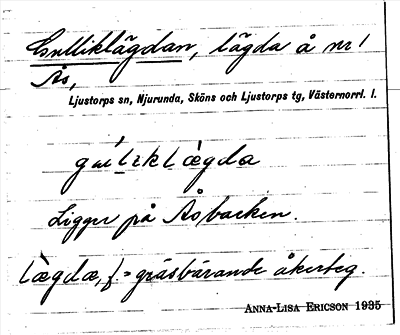 Gulliklägdan, lägda å nr 1
Ås,
Ljustorps sn, Njurunda, Sköns och Ljustorps tg, Västernorrl. l.
Ligger på Åsbacken.
lægda, f. = gräsbärande åkerteg.
ANNA-LISA ERICSON 1935